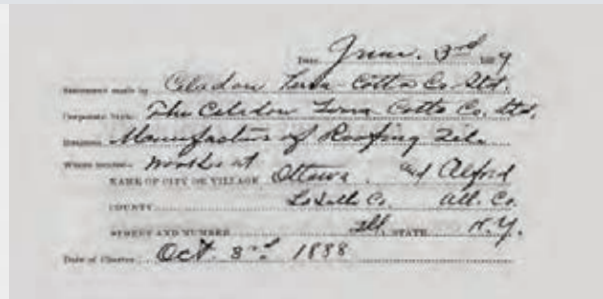 Date, June. 3rd 1889
Statement made by Celadon Terra-Cotta Co. Ltd.
Corporate Style: The Celadon Terra Cotta Co. Ltd.
Business Manufacture of Roofing Tile
Where located works at
NAME OF CITY OR VILLAGE Ottawa and Alfred
COUNTY LaSalle Co. All. Co.
STREET AND NUMBER Ill. STATE N.Y.
Date of Charter Oct. 3rd 1888